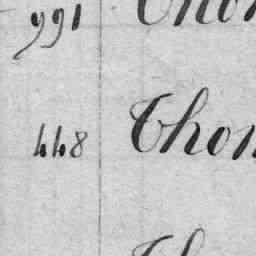 991 Thom
448 Thom